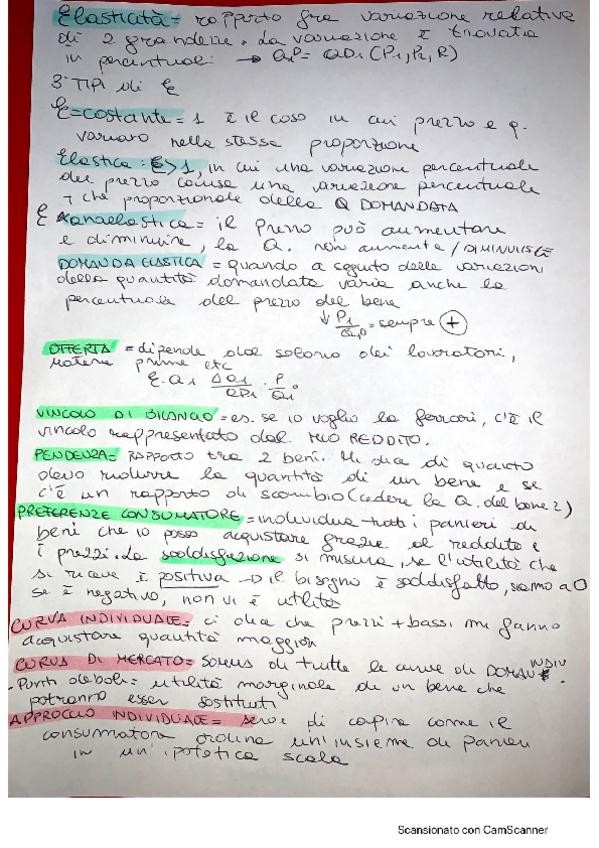 Elasticità = rapporto fra variazione relativa
di 2 grandezze. La variazione è trovata
in percentuali → QD1 (P1, P2, R)
3 TIPI di E
E = costante = 1 è il caso in cui prezzo e q.
variano nella stessa proporzione
Elastica: E>1, in cui una variazione percentuale
del prezzo causa una variazione percentuale
+ che proporzionale della Q DOMANDATA
E anaelastica = il prezzo può aumentare
e diminuire, la Q. non aumenta / DIMINUISCE
DOMANDA ELASTICA = quando a seguito delle variazioni
della quantità domandata varia anche la
percentuale del prezzo del bene
↓ P1 = sempre +
OFFERTA = dipende dal salario dei lavoratori,
materie prime etc
E.Q1 ΔQ1 . P
VINCOLO DI BILANCIO = es. se io voglio la ferrari, c'è il
vincolo rappresentato dal MIO REDDITO.
PENDENZA = RAPPORTO tra 2 beni. Mi dice di quanto
devo ridurre la quantità di un bene e se
c'è un rapporto di scambio (cedere la Q. del bene 2)
PREFERENZE CONSUMATORE = individua tutti i panieri di
beni che io posso acquistare grazie al reddito e
i prezzi. La soddisfazione si misura, se l'utilità che
si riceve è positiva → il bisogno è soddisfatto, siamo a 0
se è negativo, non vi è utilità
CURVA INDIVIDUALE = ci dice che prezzi + bassi mi fanno
acquistare quantità maggiori
CURVA DI MERCATO = somma di tutte le curve di DOMAN INDIV
- Punti deboli = utilità marginale di un bene che
potranno esser sostituiti
APPROCCIO INDIVIDUALE = serve di capire come il
consumatore ordina un'insieme di panieri
in un'ipotetica scala
Scansionato con CamScanner